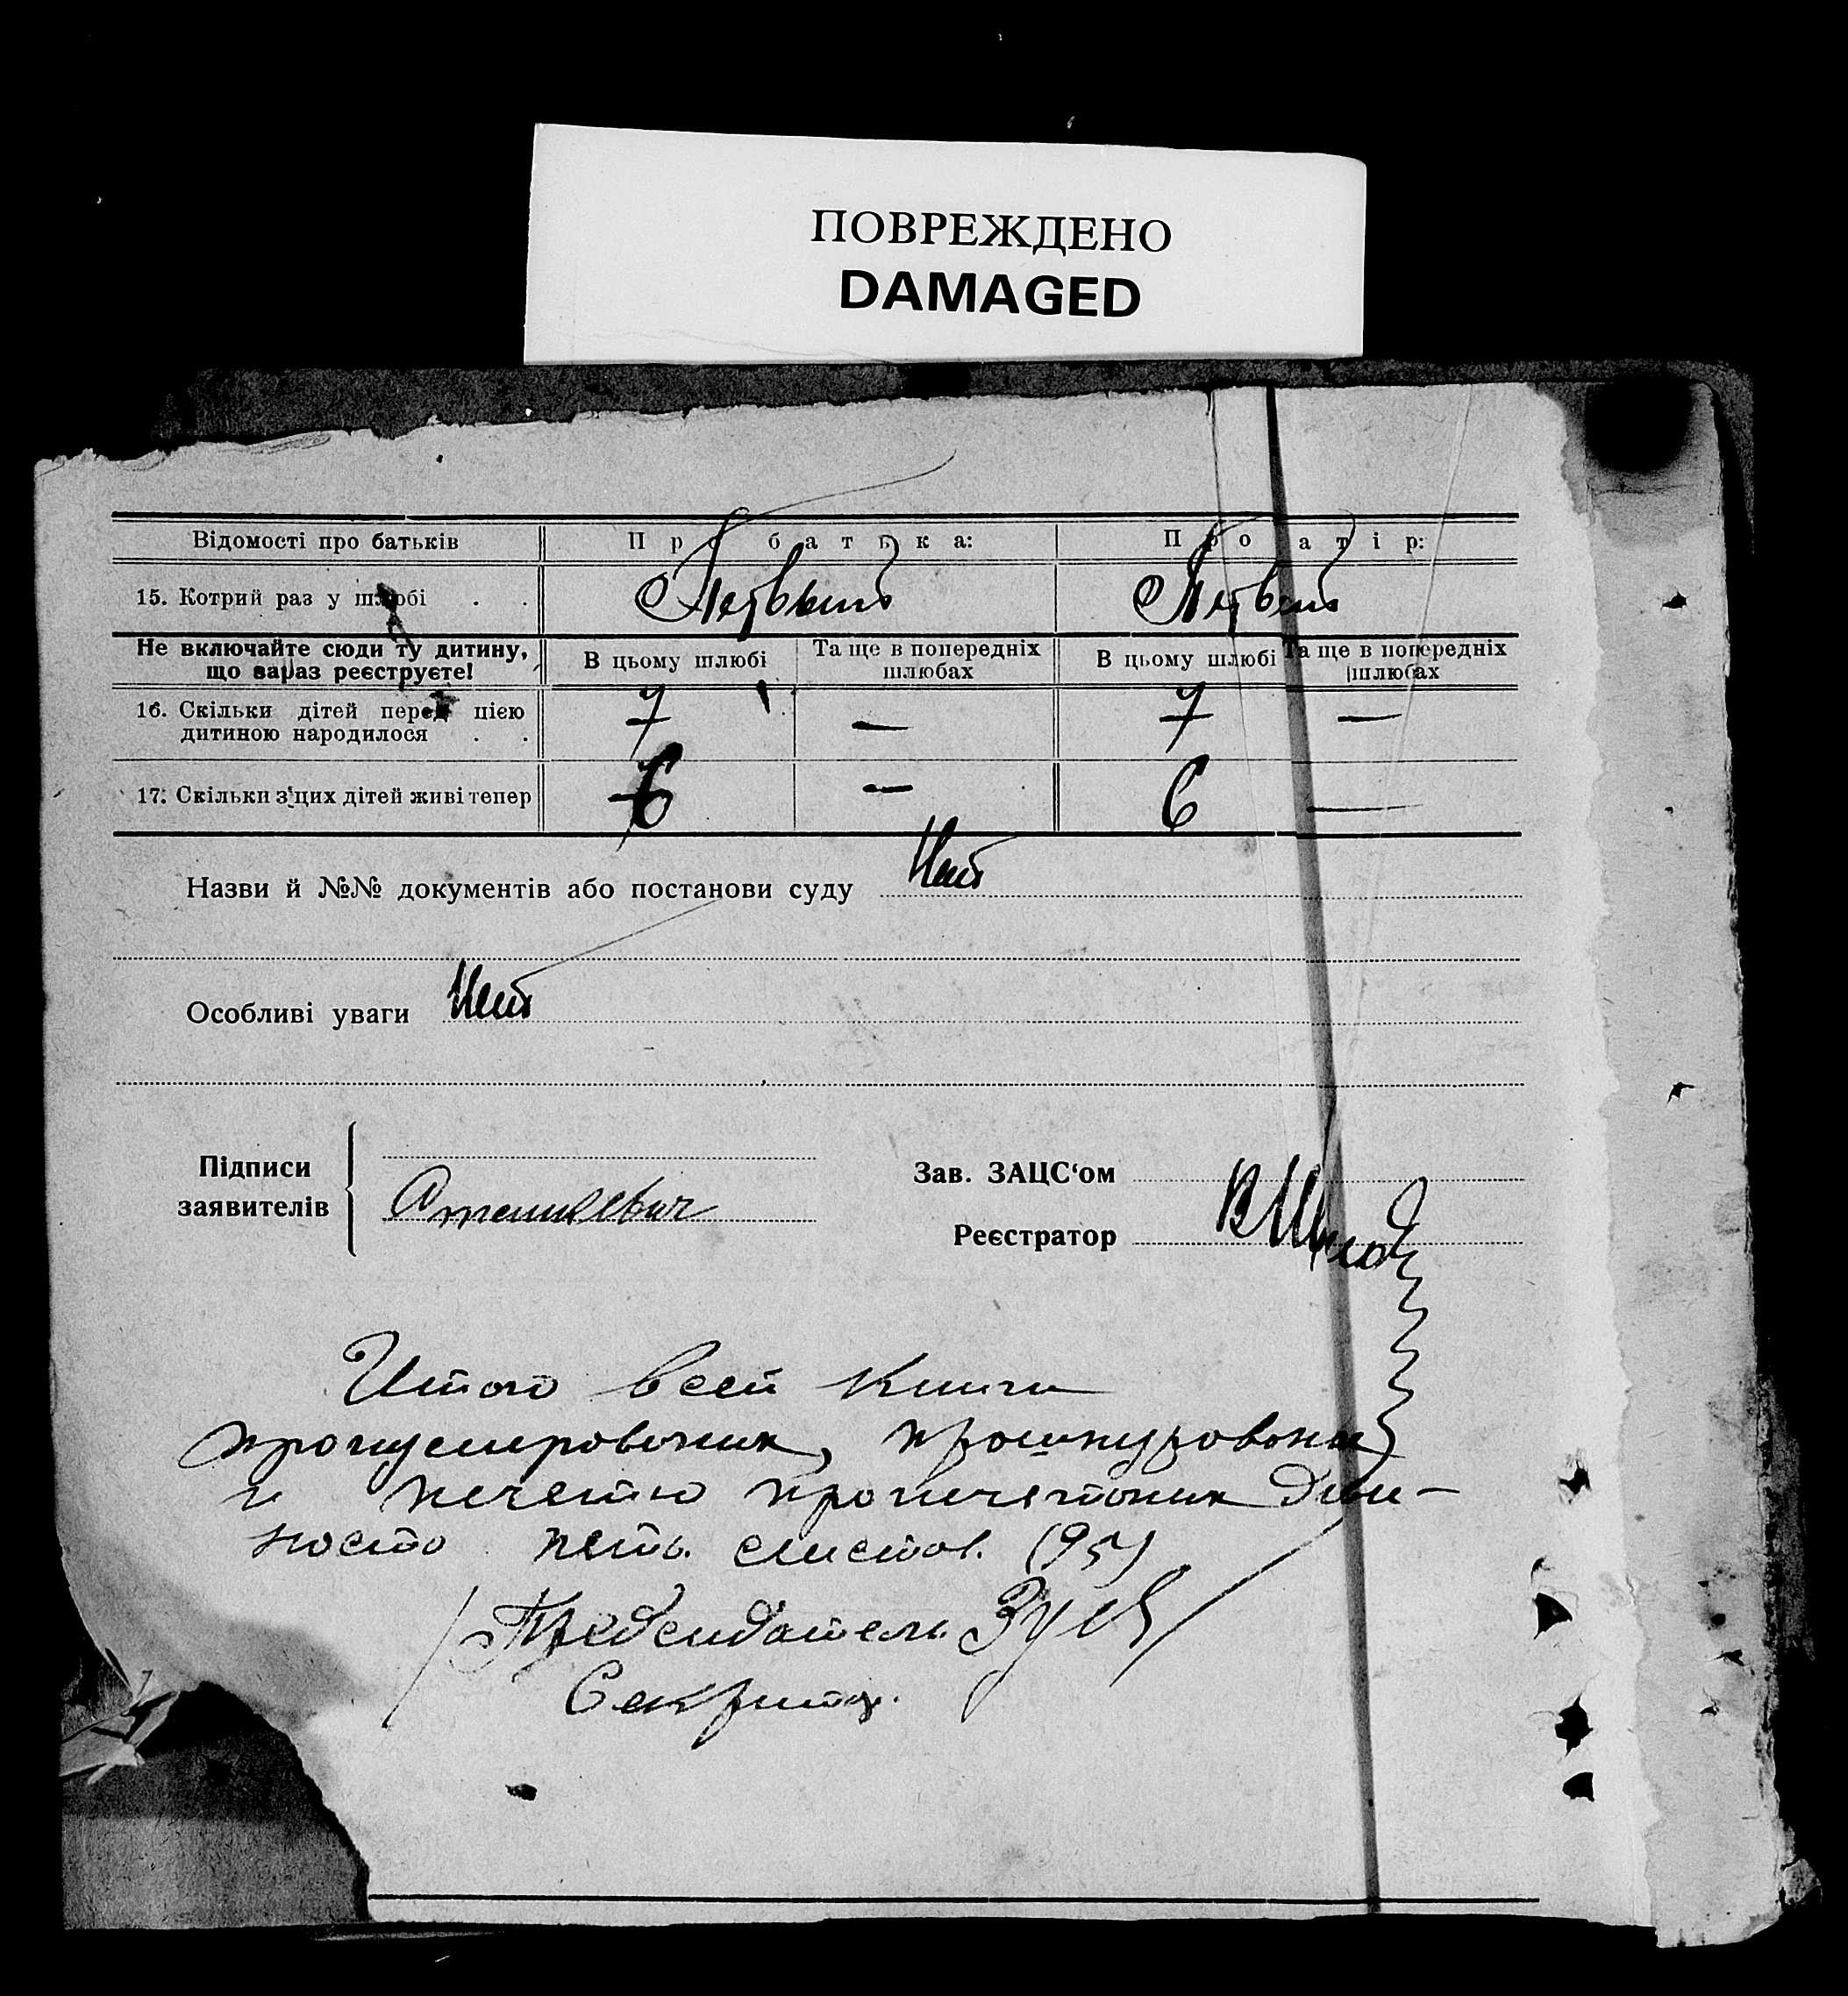 ПОВРЕЖДЕНО
DAMAGED
Відомості про батьків Про батька: Про матір:
15. Котрий раз у шлюбі . . Первый Первый
Не включайте сюди ту дитину, що зараз реєструєте! В цьому шлюбі Та ще в попередніх шлюбах В цьому шлюбі Та ще в попередніх шлюбах
16. Скільки дітей перед цією дитиною народилося . . 7 — 7 —
17. Скільки з цих дітей живі тепер 6 — 6 —
Назви й №№ документів або постанови суду Нет
Особливі уваги Нет
Підписи заявителів Станкевич
Зав. ЗАЦС‘ом
Реєстратор
Итого всей книги
пронумерованих, прошнурованы
и печатью пропечятоних девя-
носто петь листов. (95)
Председатель
Секрита.